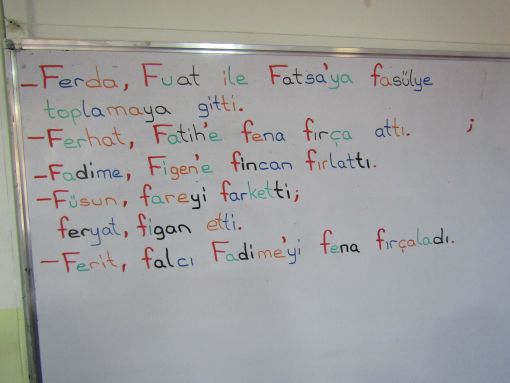 -Ferda, Fuat ile Fatsa'ya fasülye
toplamaya gitti.
-Ferhat, Fatih'e fena fırça attı. ;
-Fadime, Figen'e fincan fırlattı.
-Füsun, fareyi farketti;
feryat, figan etti.
-Ferit, falcı Fadime'yi fena fırçaladı.